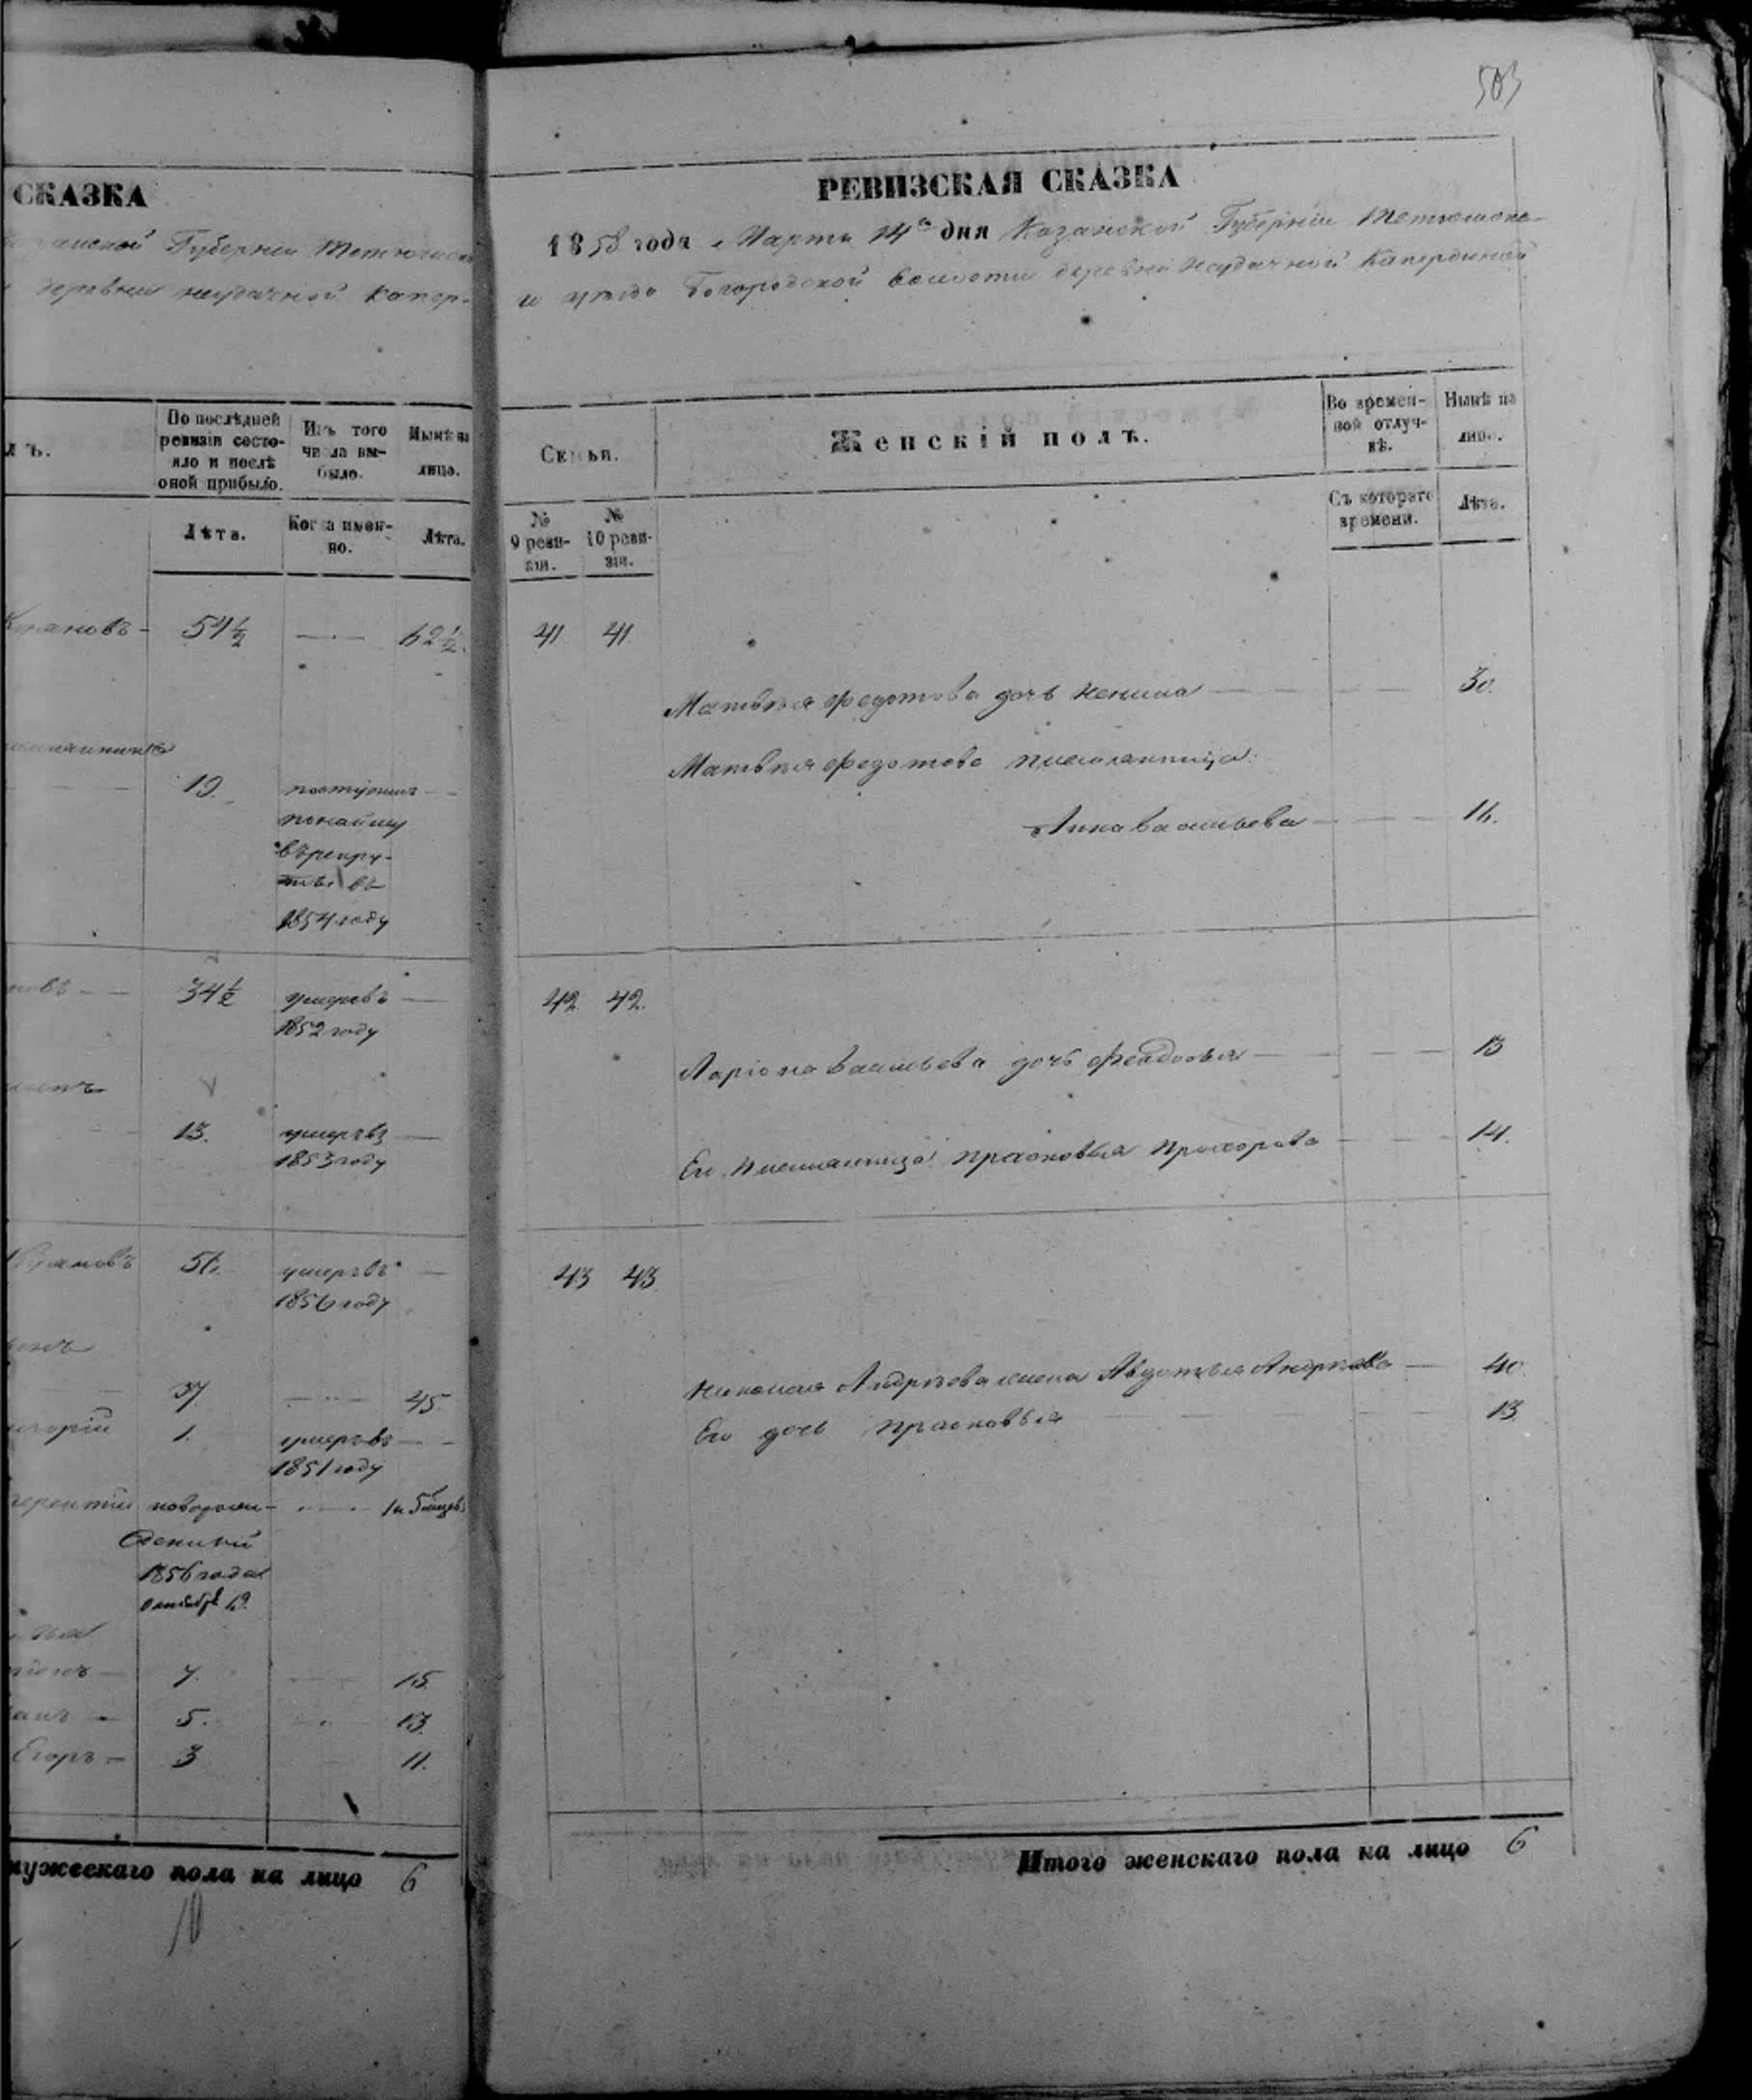 СКАЗКА
Губернии Тетюшск
деревни неудачной Капер-
лъ.
По послѣдней ревизіи состояло и послѣ оной прибыло.
Изъ того числа выбыло.
Нынѣ на лицо.
Лѣта.
Когда именно.
Лѣта.
54½ 62½
19. поступилъ
по найму
въ рекру-
ты въ
1854 году
34½ умеръ въ
1852 году
13. умеръ въ
1853 году
56. умеръ въ
1856 году
37. 45
1. умеръ въ
1851 году
новорож-
денный
1856 года
октября 19
7. 15
5. 13
Егоръ 3 11.
мужескаго пола на лицо 6
10
503
РЕВИЗСКАЯ СКАЗКА
1858 года Марта 14го дня Казанской Губерніи Тетюшска-
го уѣзда Богородской волости деревни Неудачной Капердиной
Семьи.
Женскій полъ.
Во временной отлучкѣ.
Нынѣ на лицо.
№ 9 ревизіи.
№ 10 ревизіи.
Съ котораго времени.
Лѣта.
41 41
Матвѣя Федотова дочь 30.
Матвѣя Федотова племянница
Анна Васильева 16.
42 42.
Ларіона Васильева дочь Феодосья 13
Его племянница Прасковья Прохорова 14.
43 43
Николая Андрѣева жена Авдотья Андрѣева 40.
Его дочь Прасковья 13
Итого женскаго пола на лицо 6